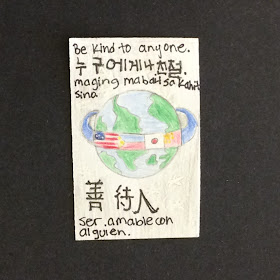 Be kind to anyone.
누구에게나 친절.
maging mabait sa kahit
sino
善待人
ser.amable con
alguien.